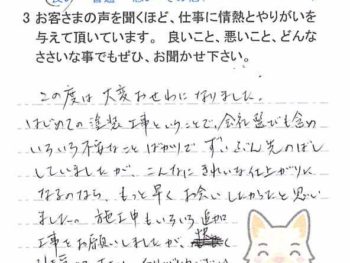 3 お客さまの声を聞くほど、仕事に情熱とやりがいを
与えて頂いています。 良いこと、悪いこと、どんな
ささいな事でもぜひ、お聞かせ下さい。
この度は大変おせわになりました。
はじめての塗装工事ということで、会社選びも含め
いろいろ不安なことばかりで ずいぶん先のばし
していましたが、こんなにきれいな仕上がりに
なるのなら、もっと早くお会いしたかったと思い
ました。施工中もいろいろ追加
工事をお願いしましたが、